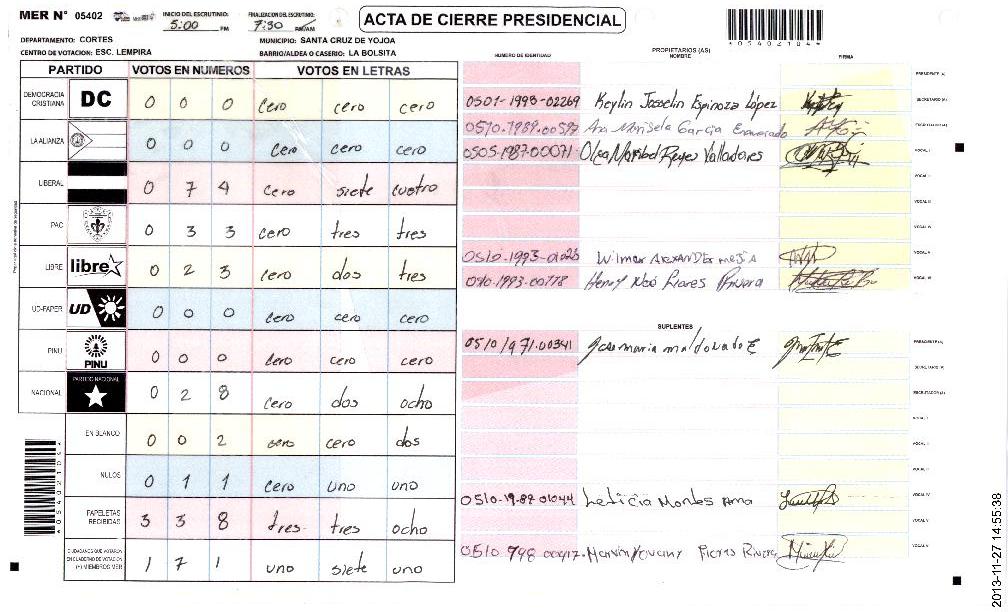 MER N° 05402
INICIO DEL ESCRUTINIO: 5:00 PM
FINALIZACION DEL ESCRUTINIO: 7:30 PM/AM
ACTA DE CIERRE PRESIDENCIAL
*05402104*
DEPARTAMENTO: CORTES
MUNICIPIO: SANTA CRUZ DE YOJOA
CENTRO DE VOTACION: ESC. LEMPIRA
BARRIO/ALDEA O CASERIO: LA BOLSITA
PARTIDO VOTOS EN NUMEROS VOTOS EN LETRAS
DEMOCRACIA CRISTIANA DC 0 0 0 cero cero cero
LA ALIANZA 0 0 0 cero cero cero
LIBERAL 0 7 4 cero siete cuatro
PAC 0 3 3 cero tres tres
LIBRE libre 0 2 3 cero dos tres
UD-FAPER UD 0 0 0 cero cero cero
PINU PINU 0 0 0 cero cero cero
NACIONAL PARTIDO NACIONAL 0 2 8 cero dos ocho
EN BLANCO 0 0 2 cero cero dos
NULOS 0 1 1 cero uno uno
PAPELETAS RECIBIDAS 3 3 8 tres tres ocho
CIUDADANOS QUE VOTARON EN CUADERNO DE VOTACION (+) MIEMBROS MER 1 7 1 uno siete uno
*05402104*
NUMERO DE IDENTIDAD
PROPIETARIOS (AS)
NOMBRE
FIRMA
PRESIDENTE (A)
0501-1993-02269 Keylin Josselin Espinoza López SECRETARIO (A)
0510.1989.00597 Ana Marisela Garcia ESCRUTADOR (A)
0505-1987-00071 Olga Maribel Reyes Valladares VOCAL I
VOCAL II
VOCAL III
VOCAL IV
Wilmer ALEXANDER mejia VOCAL V
Henry Noó Flores Rivera VOCAL VI
SUPLENTES
0510 1971.00341 Jose maria maldonado E PRESIDENTE (A)
SECRETARIO (A)
ESCRUTADOR (A)
VOCAL I
VOCAL II
VOCAL III
0510-19-87 01044 Leticia Montes Ama VOCAL IV
VOCAL V
Flores Rivera VOCAL VI
2013-11-27 14:55:38